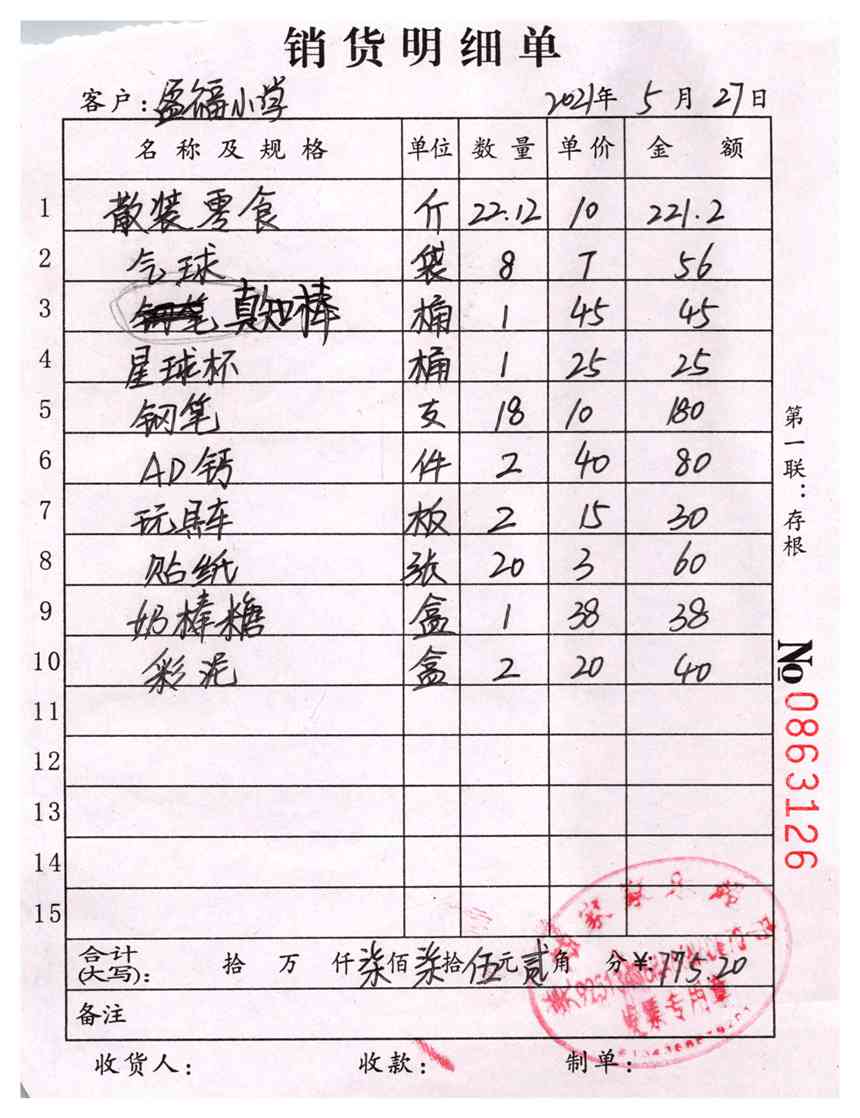 销货明细单
客户:盈福小学 2021年5月27日
名称及规格 单位 数量 单价 金额
1 散装零食 斤 22.12 10 221.2
2 气球 袋 8 7 56
3 真知棒 桶 1 45 45
4 星球杯 桶 1 25 25
5 钢笔 支 18 10 180
6 AD钙 件 2 40 80
7 玩具车 板 2 15 30
8 贴纸 张 20 3 60
9 奶棒糖 盒 1 38 38
10 彩泥 盒 2 20 40
11
12
13
14
15
合计(大写): 拾 万 仟柒佰柒拾伍元贰角 分¥:775.20
备注
收货人: 收款: 制单:
第一联:存根
№0863126
发票专用章